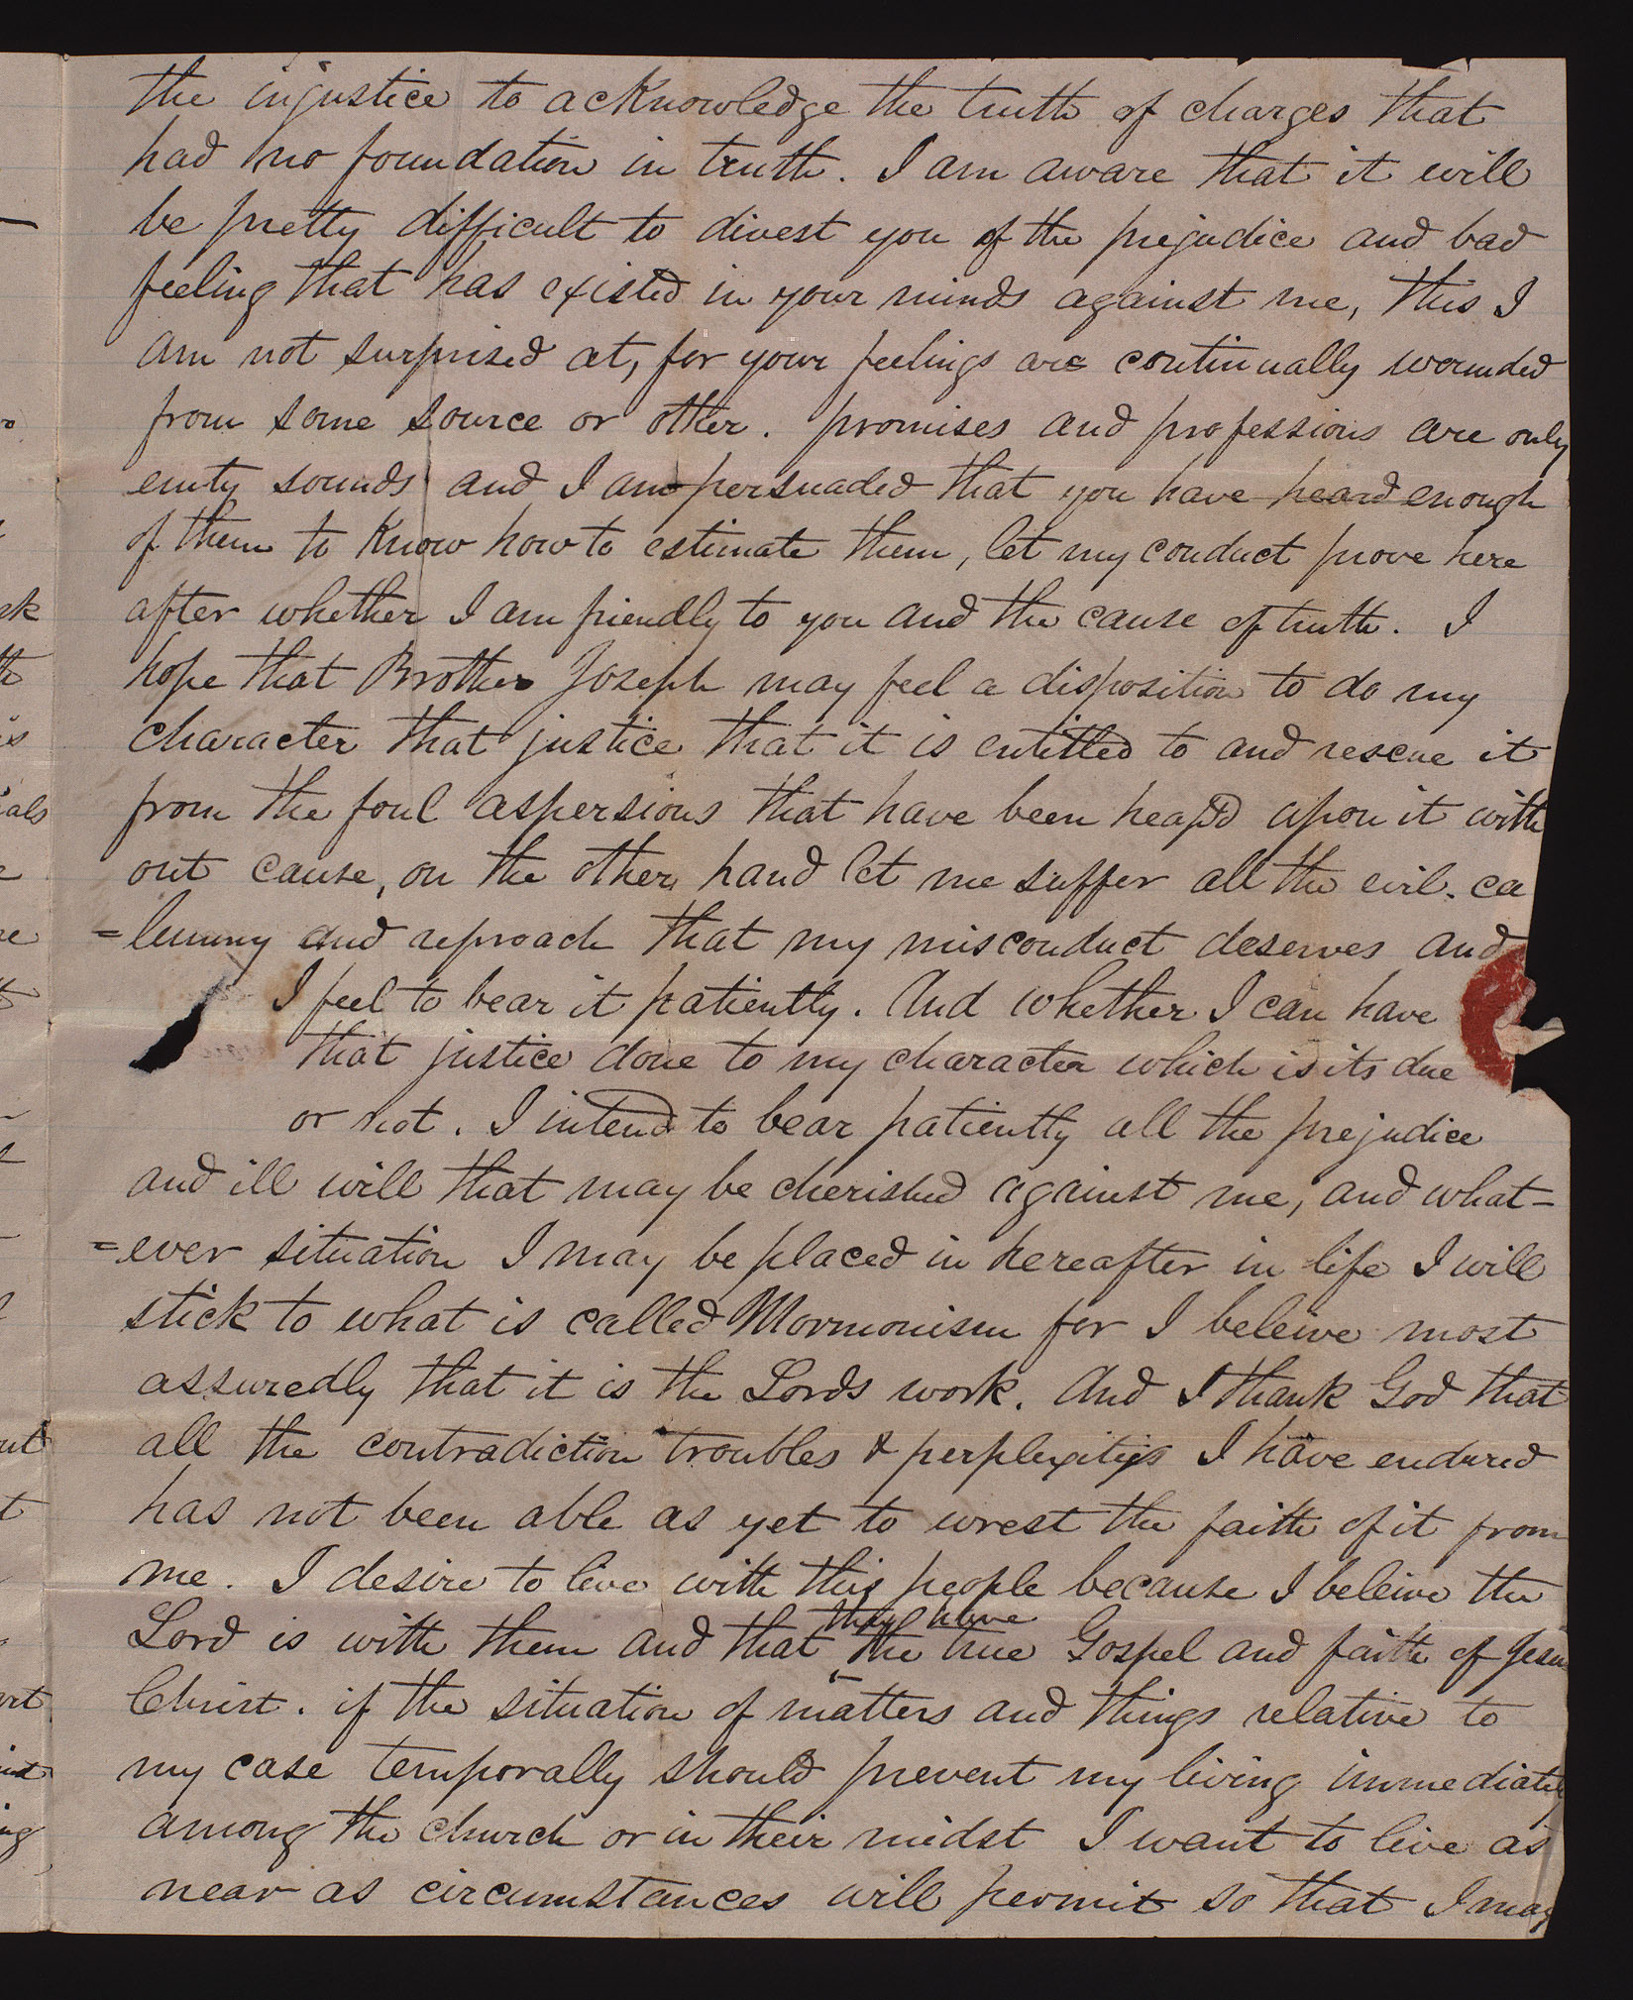 the injustice to acknowledge the truth of charges that
had no foundation in truth. I am aware that it will
be pretty difficult to divest you of the prejudice and bad
feeling that has existed in your minds against me, this I
am not surprised at, for your feelings are continually wounded
from some source or other. promises and professions are only
emty sounds and I am persuaded that you have heard enough
of them to Know how to estimate them, let my conduct prove here
after whether I am friendly to you and the cause of truth. I
hope that Brother Joseph may feel a disposition to do my
character that justice that it is entitled to and rescue it
from the foul aspersions that have been heap'd upon it with
out cause, on the other hand let me suffer all the evil. ca
=lumny and reproach that my misconduct deserves and
I feel to bear it patiently. And whether I can have
that justice done to my character which is its due
or not. I intend to bear patiently all the prejudice
and ill will that may be cherished against me, and what=
=ever situation I may be placed in hereafter in life I will
stick to what is called Mormonism for I beleive most
assuredly that it is the Lords work. And I thank God that
all the contradiction troubles & perplexities I have endured
has not been able as yet to wrest the faith of it from
me. I desire to live with this people because I beleive the
they have
Lord is with them and that the true Gospel and faith of Jesus
Christ. if the situation of matters and things relative to
my case temporally should prevent my living immediately
among the church or in their midst I want to live as
near as circumstances will permit so that I may
ok
th
is
ials
re
out
t
ort
ing